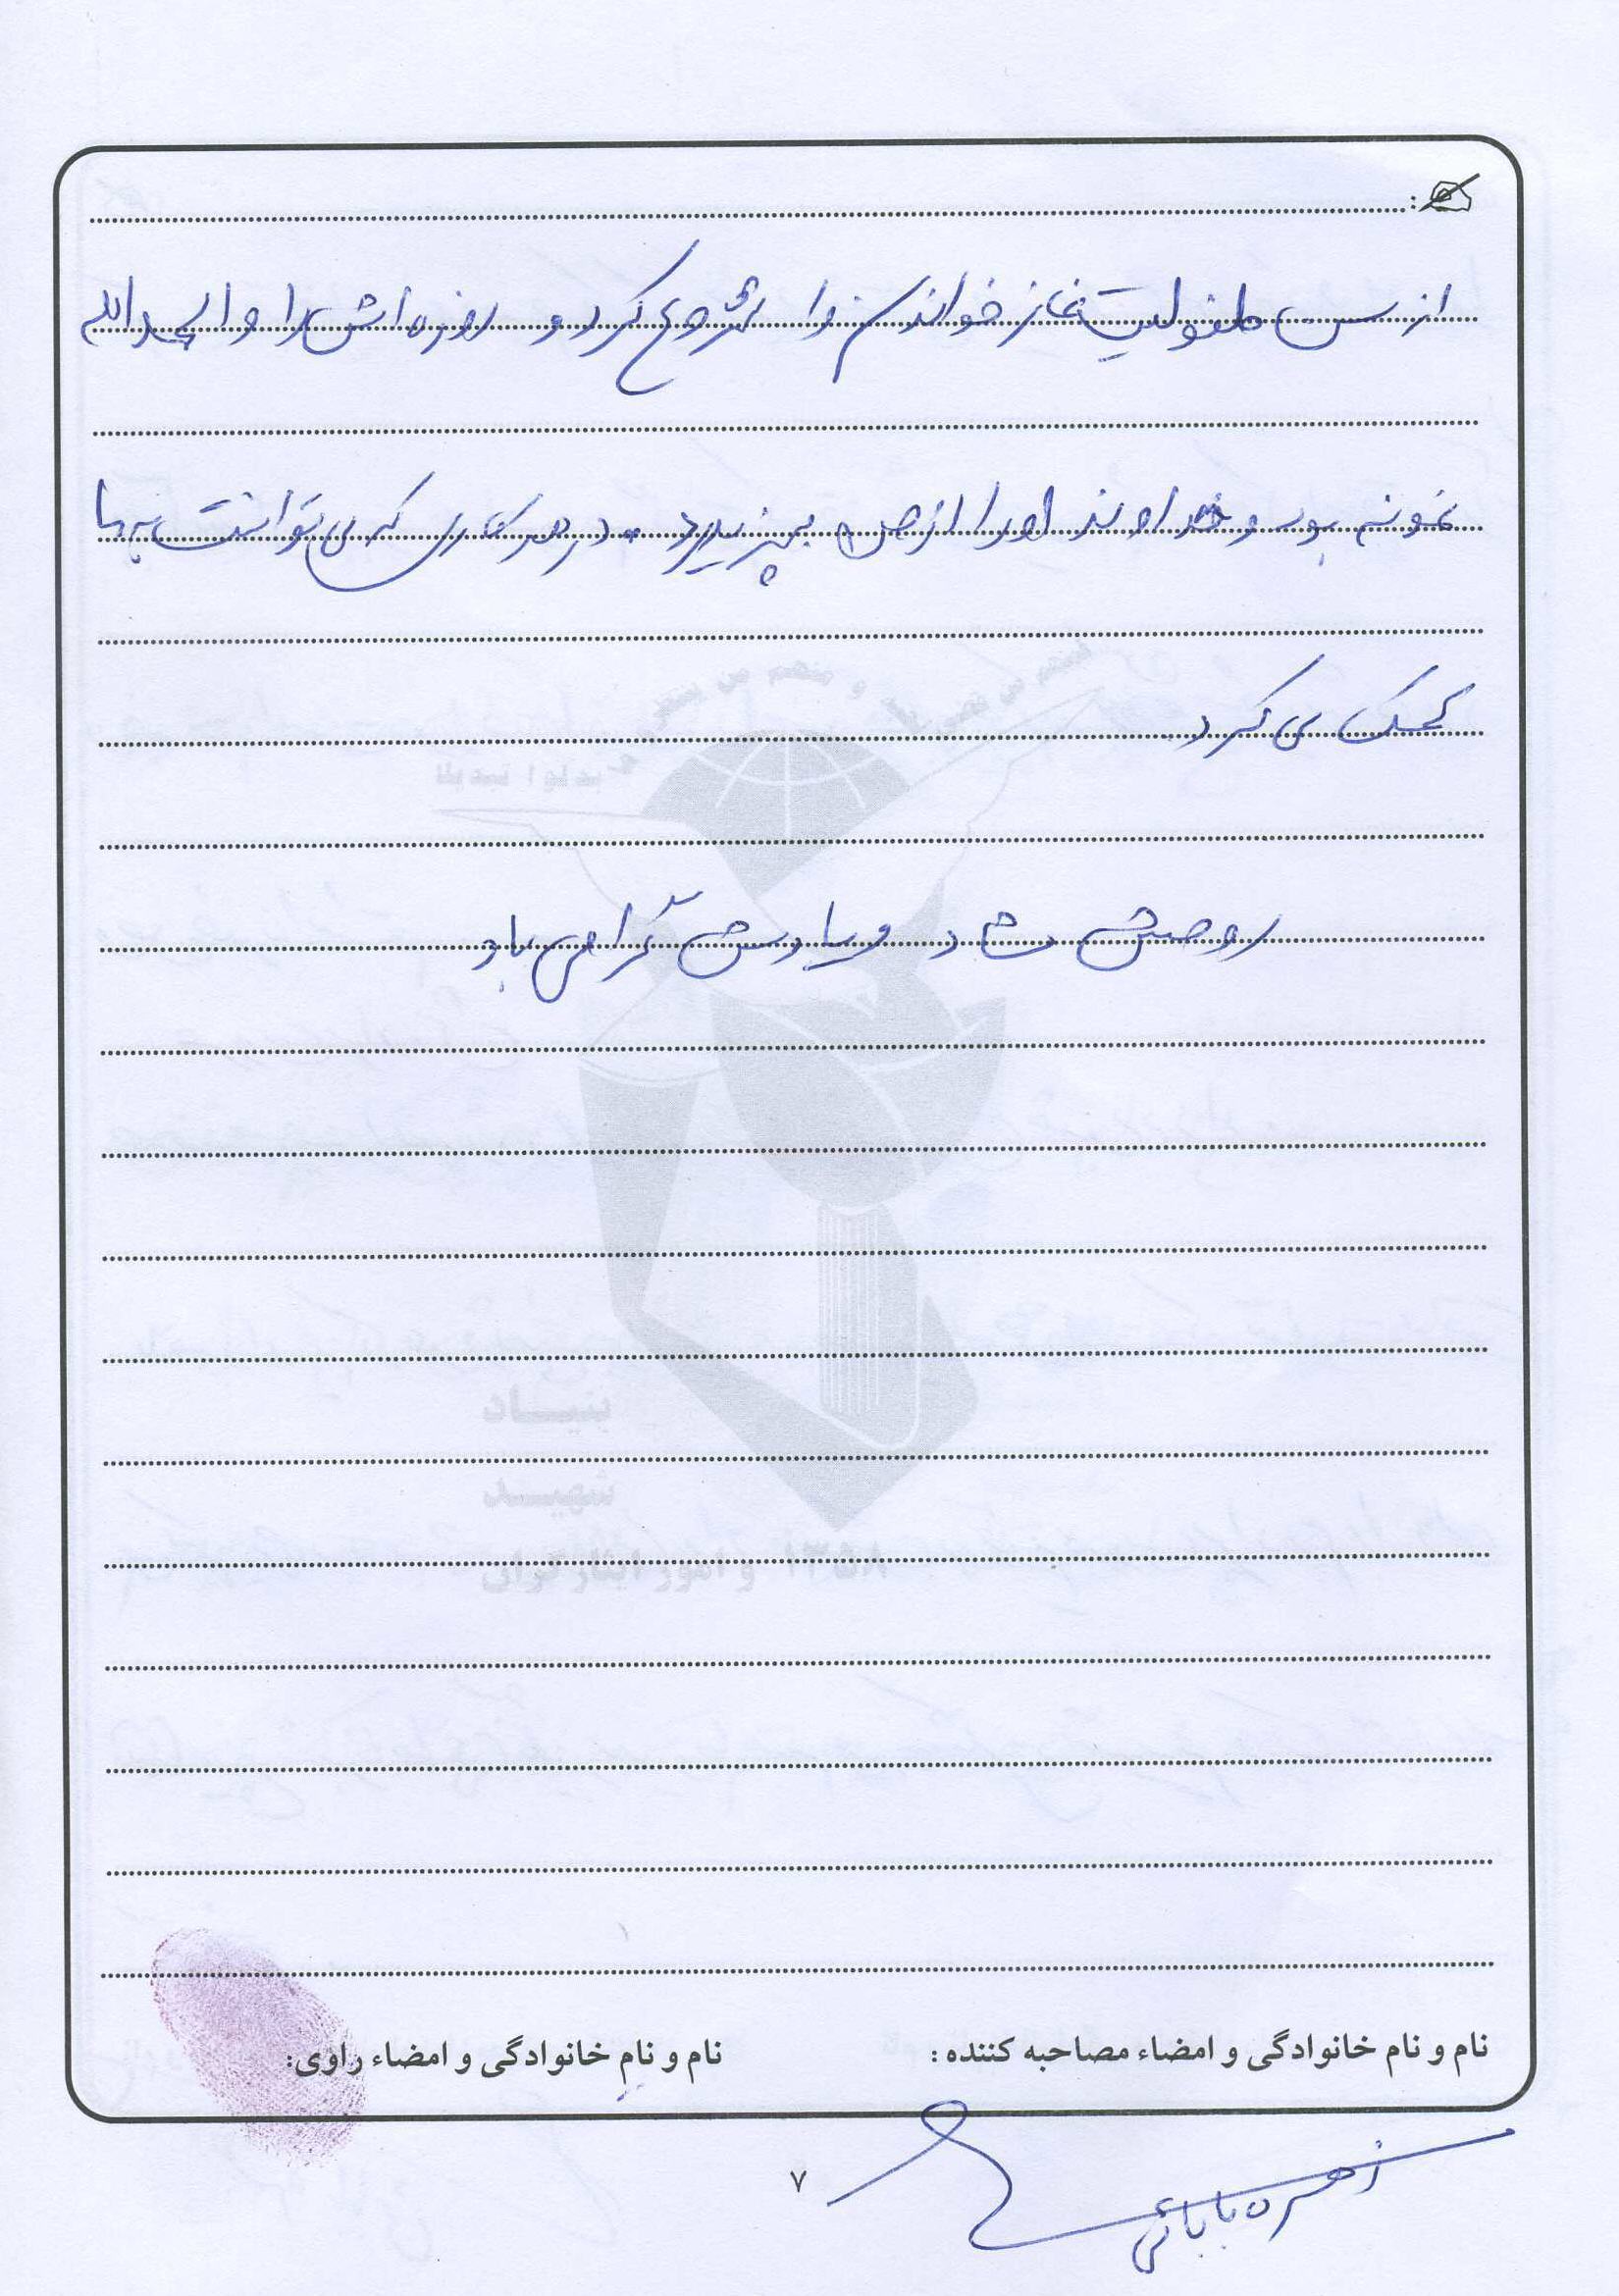 از سن طفولیت نماز خواندن را شروع کرد و روزه اش را و الحمدالله
نمونه بود و خداوند او را از ما بپزیرد . در هر کاری که می توانست به ما
کمک می کرد
روحش شاد و یادش گرامی باد
بنیاد
شهید
و امور ایثارگران ۱۳۵۸
نام و نام خانوادگی و امضاء مصاحبه کننده : نام و نام خانوادگی و امضاء راوی:
زهره بابائی
۷